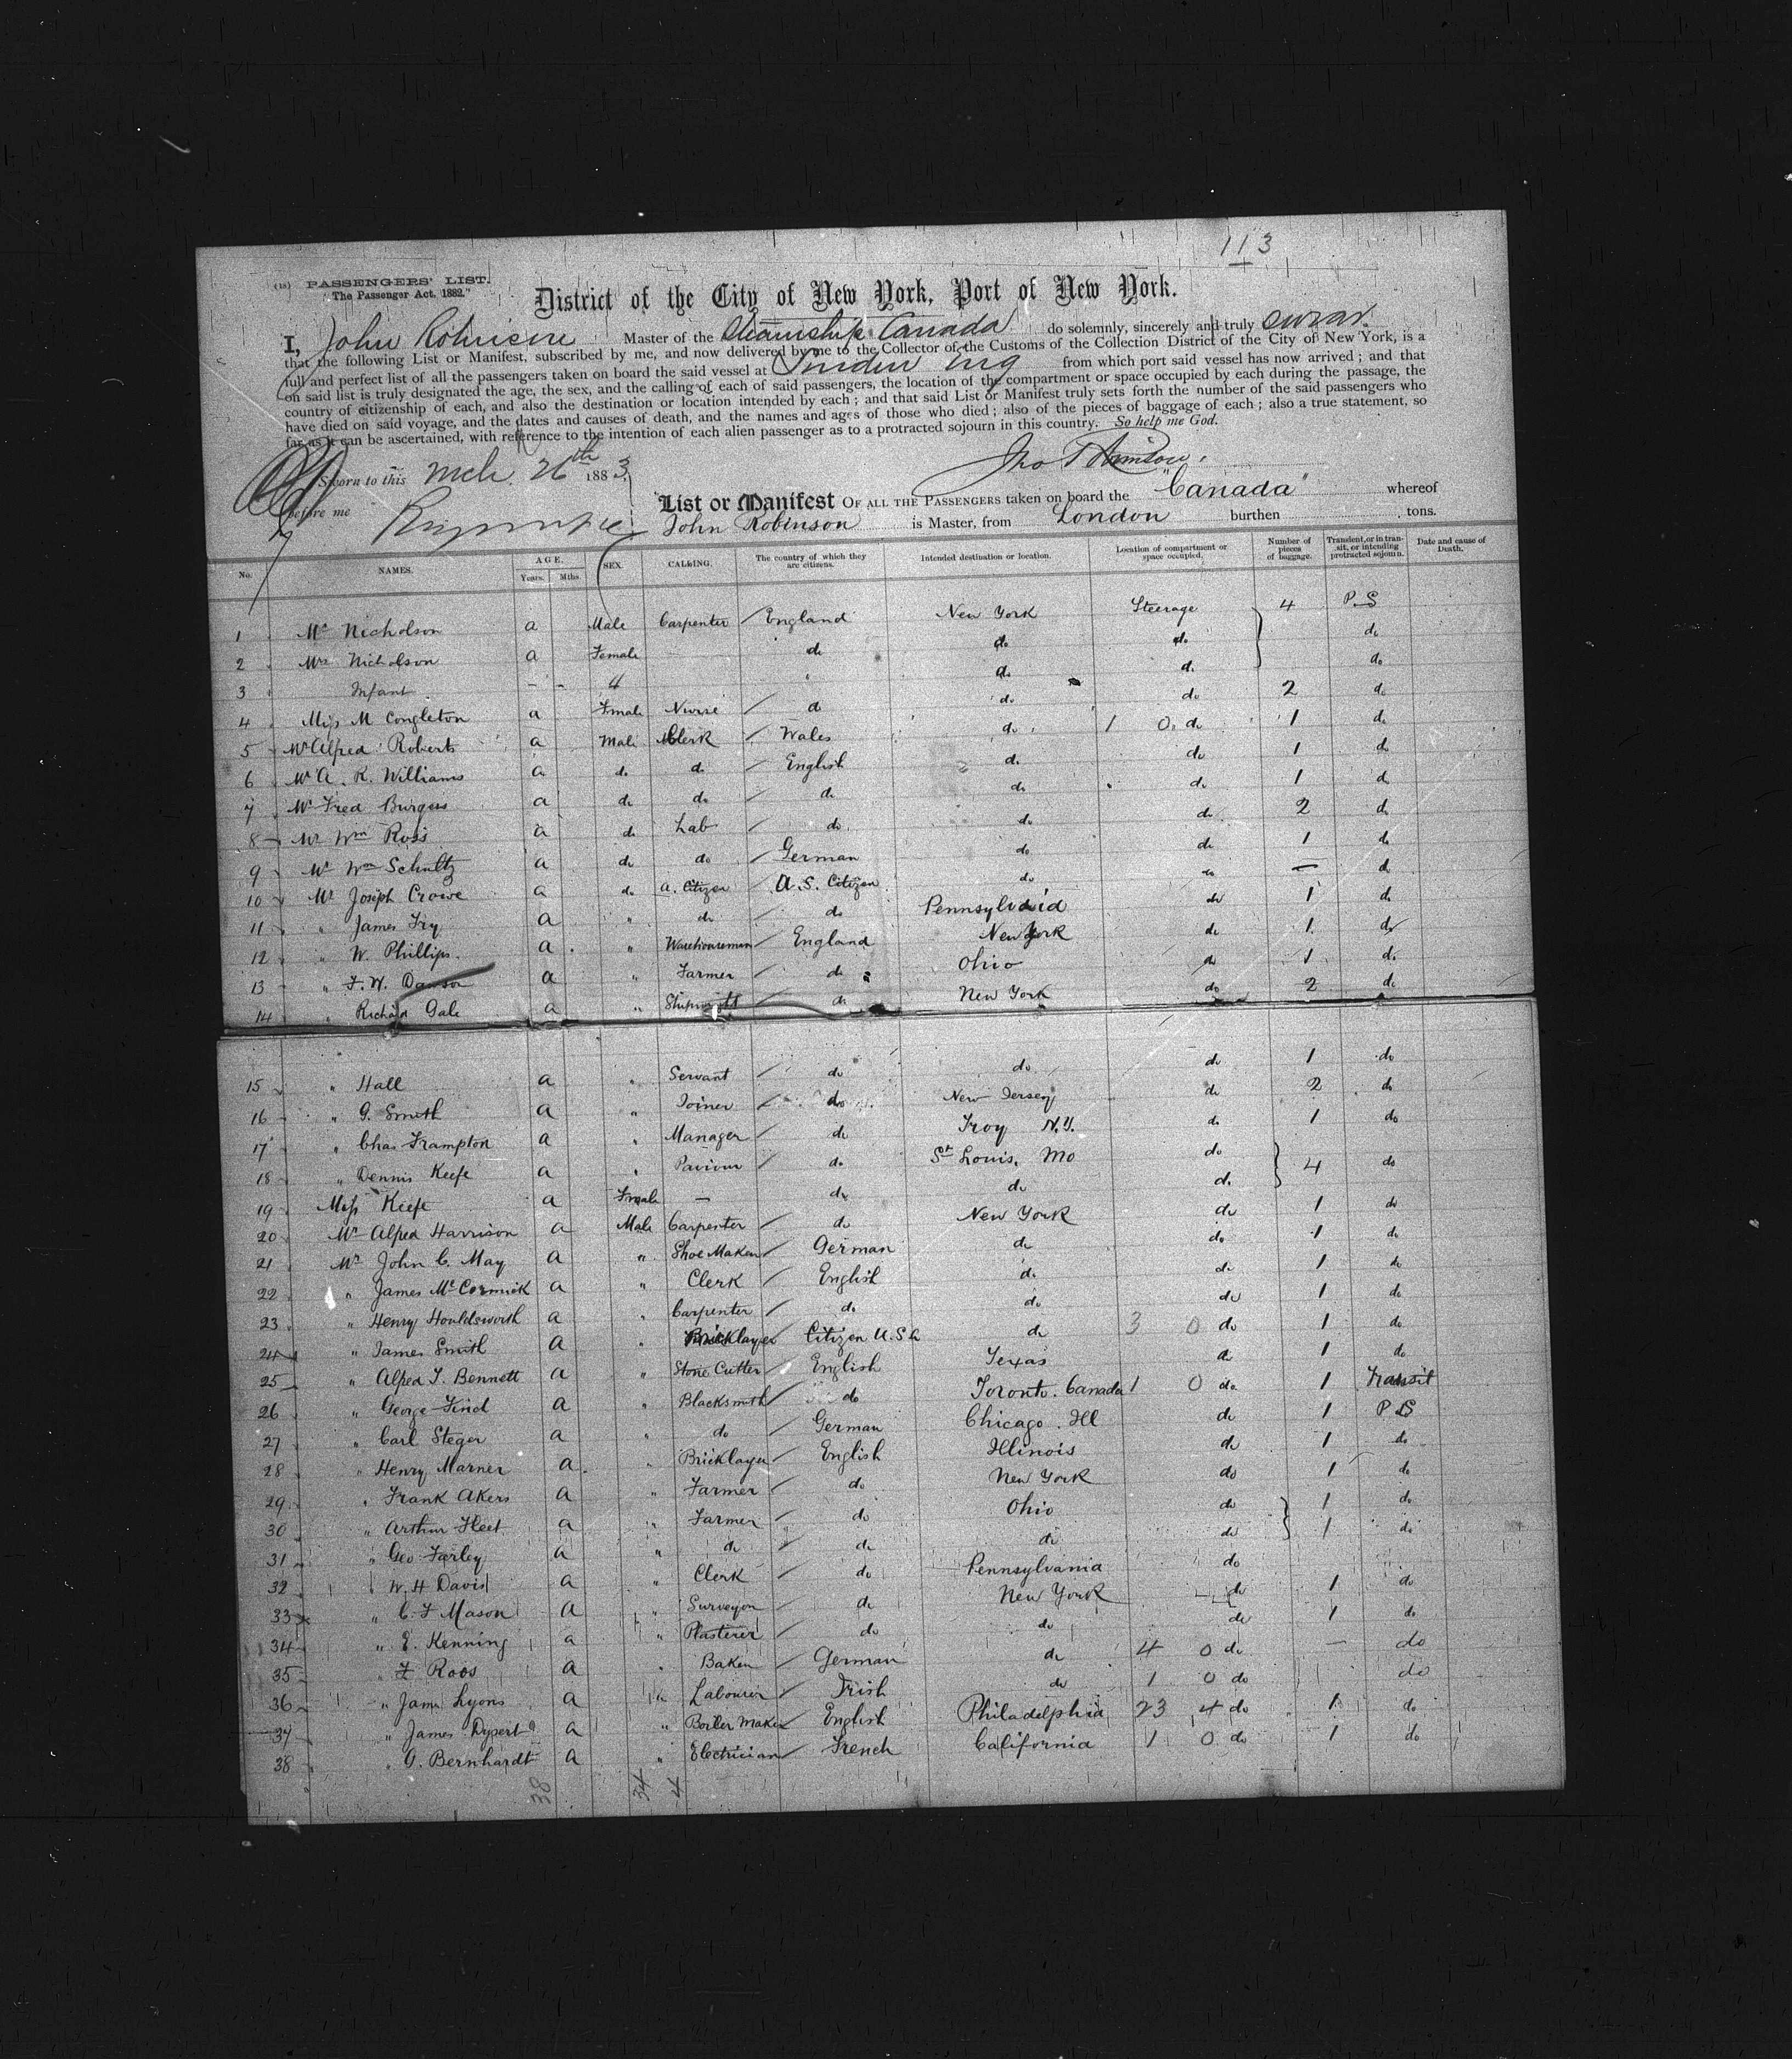 113
(18) PASSENGERS' LIST.
"The Passenger Act. 1882."
District of the City of New York, Port of New York.
I, John Robinson Master of the Steamship Canada do solemnly, sincerely and truly swear
that the following List or Manifest, subscribed by me, and now delivered by me to the Collector of the Customs of the Collection District of the City of New York, is a
full and perfect list of all the passengers taken on board the said vessel at London Eng from which port said vessel has now arrived; and that
on said list is truly designated the age, the sex, and the calling of each of said passengers, the location of the compartment or space occupied by each during the passage, the
country of citizenship of each, and also the destination or location intended by each; and that said List or Manifest truly sets forth the number of the said passengers who
have died on said voyage, and the dates and causes of death, and the names and ages of those who died; also of the pieces of baggage of each; also a true statement, so
far as it can be ascertained, with reference to the intention of each alien passenger as to a protracted sojourn in this country. So help me God.
Sworn to this Mch. 26th 1883 Jno Robinson
before me
List or Manifest OF ALL THE PASSENGERS taken on board the "Canada" whereof
John Robinson is Master, from London burthen tons.
No. NAMES. AGE. Years. Mths. SEX. CALLING. The country of which they are citizens. Intended destination or location. Location of compartment or space occupied. Number of pieces of baggage. Transient, or in transit, or intending protracted sojourn. Date and cause of Death.
1 Mr Nicholson a Male Carpenter England New York Steerage 4 P.S
2 Mrs Nicholson a Female do do do do
3 Infant - - " " do do do
4 Miss M Congleton a Female Nurse do do do 2 do
5 Mr Alfred Roberts a Male Clerk Wales do 1 0 do 1 do
6 Mr A. R. Williams a do do English do do 1 do
7 Mr Fred Burgess a do do do do do 1 do
8 Mr Wm Ross a do Lab do do do 2 do
9 Mr Wm Schultz a do do German do do 1 do
10 Mr Joseph Crowe a do A. Citizen U.S. Citizen do do — do
11 " James Fry a " do do Pennsylvania do 1 do
12 " W. Phillips a " Warehouseman England New York do 1 do
13 " F. W. Dawson a " Farmer do Ohio do 1 do
14 " Richard Gale a " Shipwright do New York do 2 do
15 " Hall a " Servant do do do 1 do
16 " G. Smith a " Joiner do New Jersey do 2 do
17 " Chas Frampton a " Manager do Troy N.Y. do 1 do
18 " Dennis Keefe a " Paviour do St Louis, Mo do 4 do
19 Miss Keefe a Female — do do do
20 Mr Alfred Harrison a Male Carpenter do New York do 1 do
21 Mr John C. May a " Shoe Maker German do do 1 do
22 " James McCormick a " Clerk English do do 1 do
23 " Henry Houldsworth a " Carpenter do do do 1 do
24 " James Smith a " Bricklayer Citizen U.S.A do 3 0 do 1 do
25 " Alfred T. Bennett a " Stone Cutter English Texas do 1 do
26 " George Find a " Blacksmith do Toronto. Canada 1 0 do 1 Transit
27 " Carl Steger a " do German Chicago. Ill do 1 P S
28 " Henry Marner a " Bricklayer English Illinois do 1 do
29 " Frank Akers a " Farmer do New York do 1 do
30 " Arthur Fleet a " Farmer do Ohio do 1 do
31 " Geo Farley a " do do do do 1 do
32 " W. H Davis a " Clerk do Pennsylvania do
33 " C. F Mason a " Surveyor do New York do 1 do
34 " E. Kenning a " Plasterer do do do 1 do
35 " F Roos a " Baker German do 4 0 do — do
36 " James Lyons a " Labourer Irish do 1 0 do do
37 " James Dysert a " Boiler Maker English Philadelphia 23 4 do 1 do
38 " O. Bernhardt a " Electrician French California 1 0 do 1 do
38 34 4